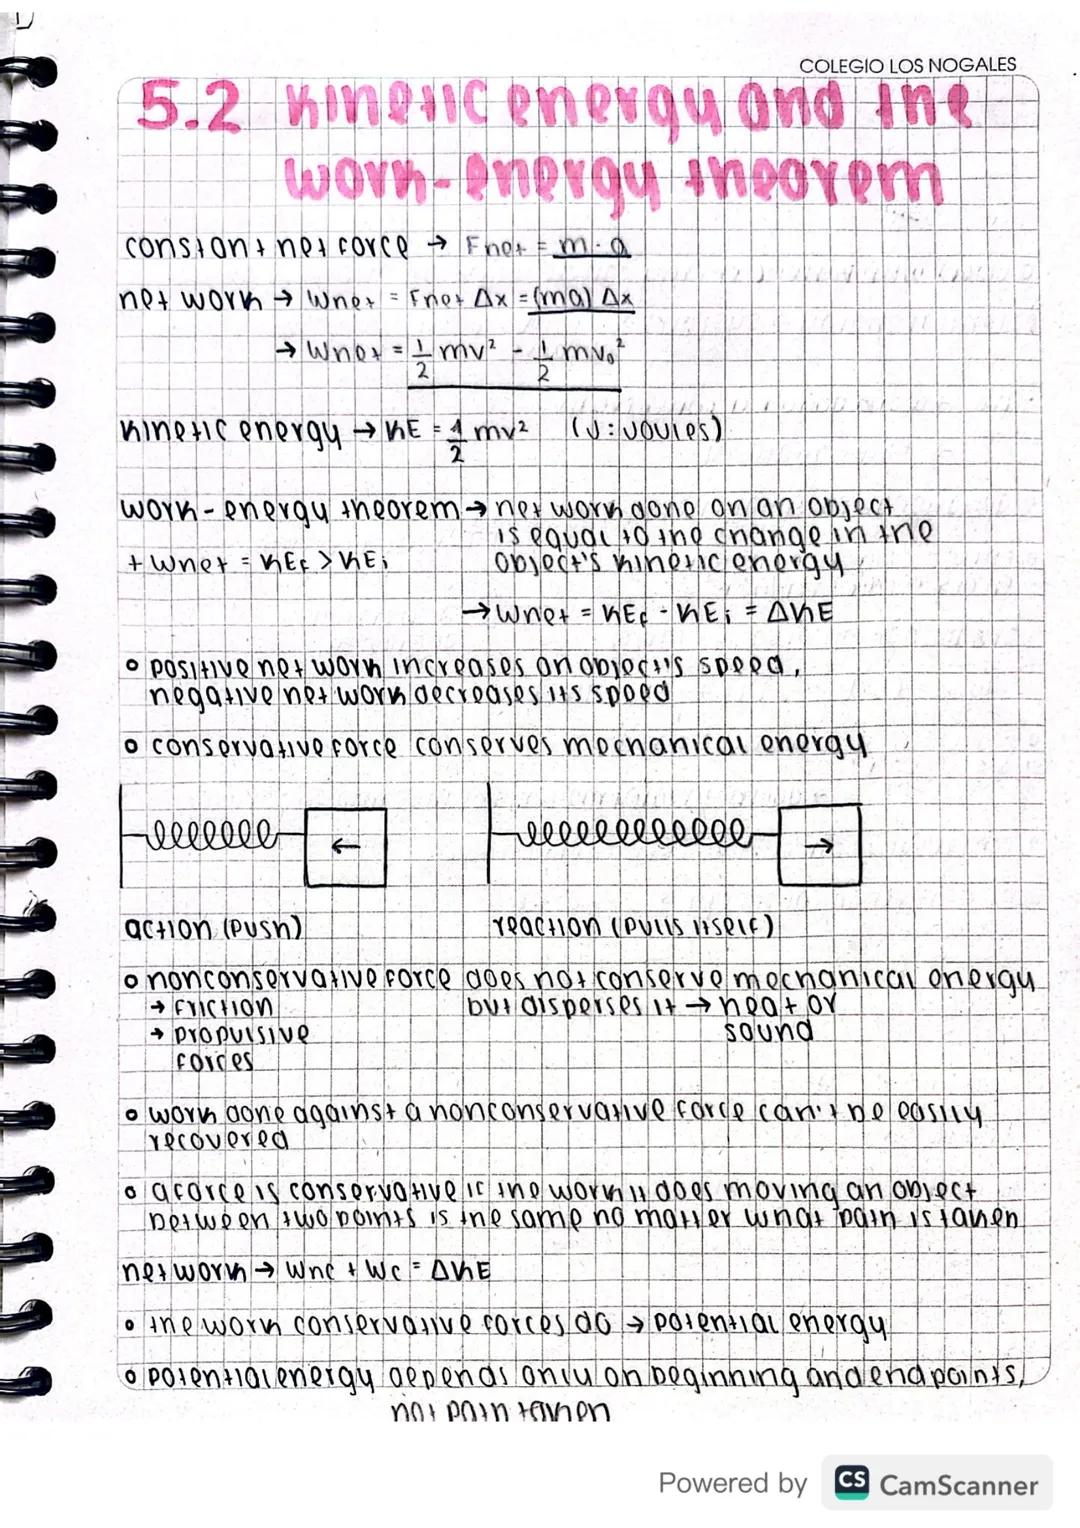 COLEGIO LOS NOGALES
5.2 Kinetic energy and the
work-energy theorem
constant net force → Fnet = m·a
net work → Wnet = Fnet Δx = (ma) Δx
→ Wnet = 1/2 mv² - 1/2 mv₀²
kinetic energy → KE = 1/2 mv² (J: Joules)
work-energy theorem → net work done on an object
is equal to the change in the
+ Wnet = KEf > KEi object's kinetic energy
→ Wnet = KEf - KEi = ΔKE
• positive net work increases an object's speed,
negative net work decreases its speed
• conservative force conserves mechanical energy
← →
action (push) reaction (pulls itself)
• nonconservative force does not conserve mechanical energy
→ friction but disperses it → heat or
→ propulsive sound
forces
• work done against a nonconservative force can't be easily
recovered
• a force is conservative if the work it does moving an object
between two points is the same no matter what path is taken
net work → Wnc + Wc = ΔKE
• the work conservative forces do → potential energy
• potential energy depends only on beginning and end points,
not path taken
Powered by CS CamScanner